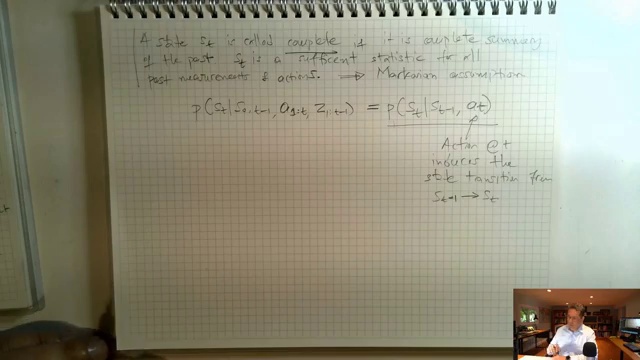 A state St is called complete if it is complete summary
of the past St is a sufficient statistic for all
past measurements & actions. ⟹ Markovian assumption
p(St|S0:t-1, a1:t, z1:t-1) = p(St|St-1, at)
Action @t
induces the
state transition from
St-1 → St